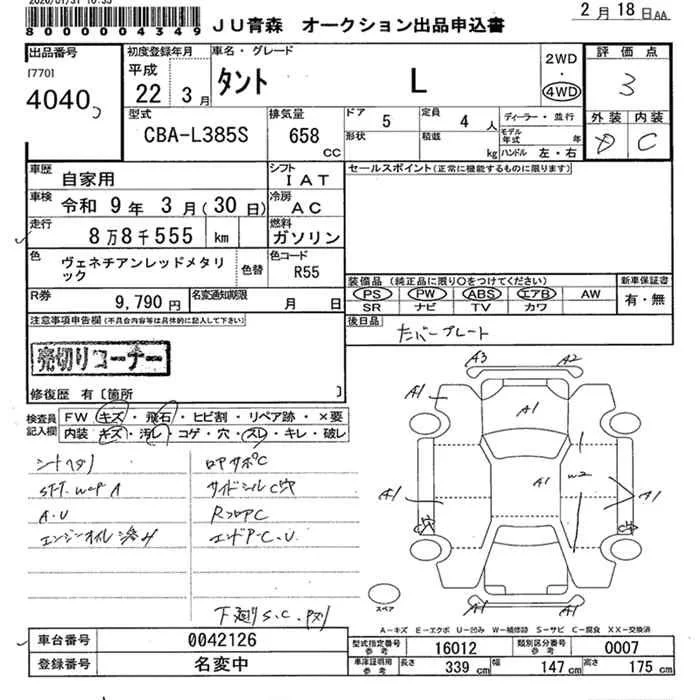 8000004349
JU青森 オークション出品申込書
2月18日AA
出品番号
[770]
4040
初度登録年月
平成
22 3月
車名・グレード
タント L
2WD
・
4WD
評価点
3
外装 内装
D C
型式
CBA-L385S
排気量
658 cc
ドア 5
定員 4人
形状
積載 kg
ディーラー・並行
モデル年式 年
ハンドル 左・右
車歴 自家用
シフト IAT
セールスポイント(正常に機能するものに限ります)
車検 令和 9年 3月(30日)
冷房 AC
走行 8万8千555 km
燃料 ガソリン
色 ヴェネチアンレッドメタリック
色替
色コード R55
R券 9,790円
名変通知期限 月 日
装備品(純正品に限り○をつけてください)
新車保証書
PS PW ABS エアB AW
SR ナビ TV カワ
有・無
後日品
注意事項申告欄(不具合内容等は具体的に記入して下さい)
売切りコーナー
修復歴 有[箇所 ]
検査員記入欄
FW キズ・飛石・ヒビ割・リペア跡・×要
内装 キズ・汚レ・コゲ・穴・スレ・キレ・破レ
シートヘタリ
A.U
ロアサポC
サイドシルC穴
RフロアC
下廻りS.C.
A3 A2
A1 A1
A1 W2
A1 A1
C穴
A1 A1
スペア
A-キズ E-エクボ U-凹み W-補修跡 S-サビ C-腐食 XX-交換済
車台番号 0042126
登録番号 名変中
型式指定番号参考 16012
類別区分番号参考 0007
車庫証明用参考 長さ 339cm 幅 147cm 高さ 175cm